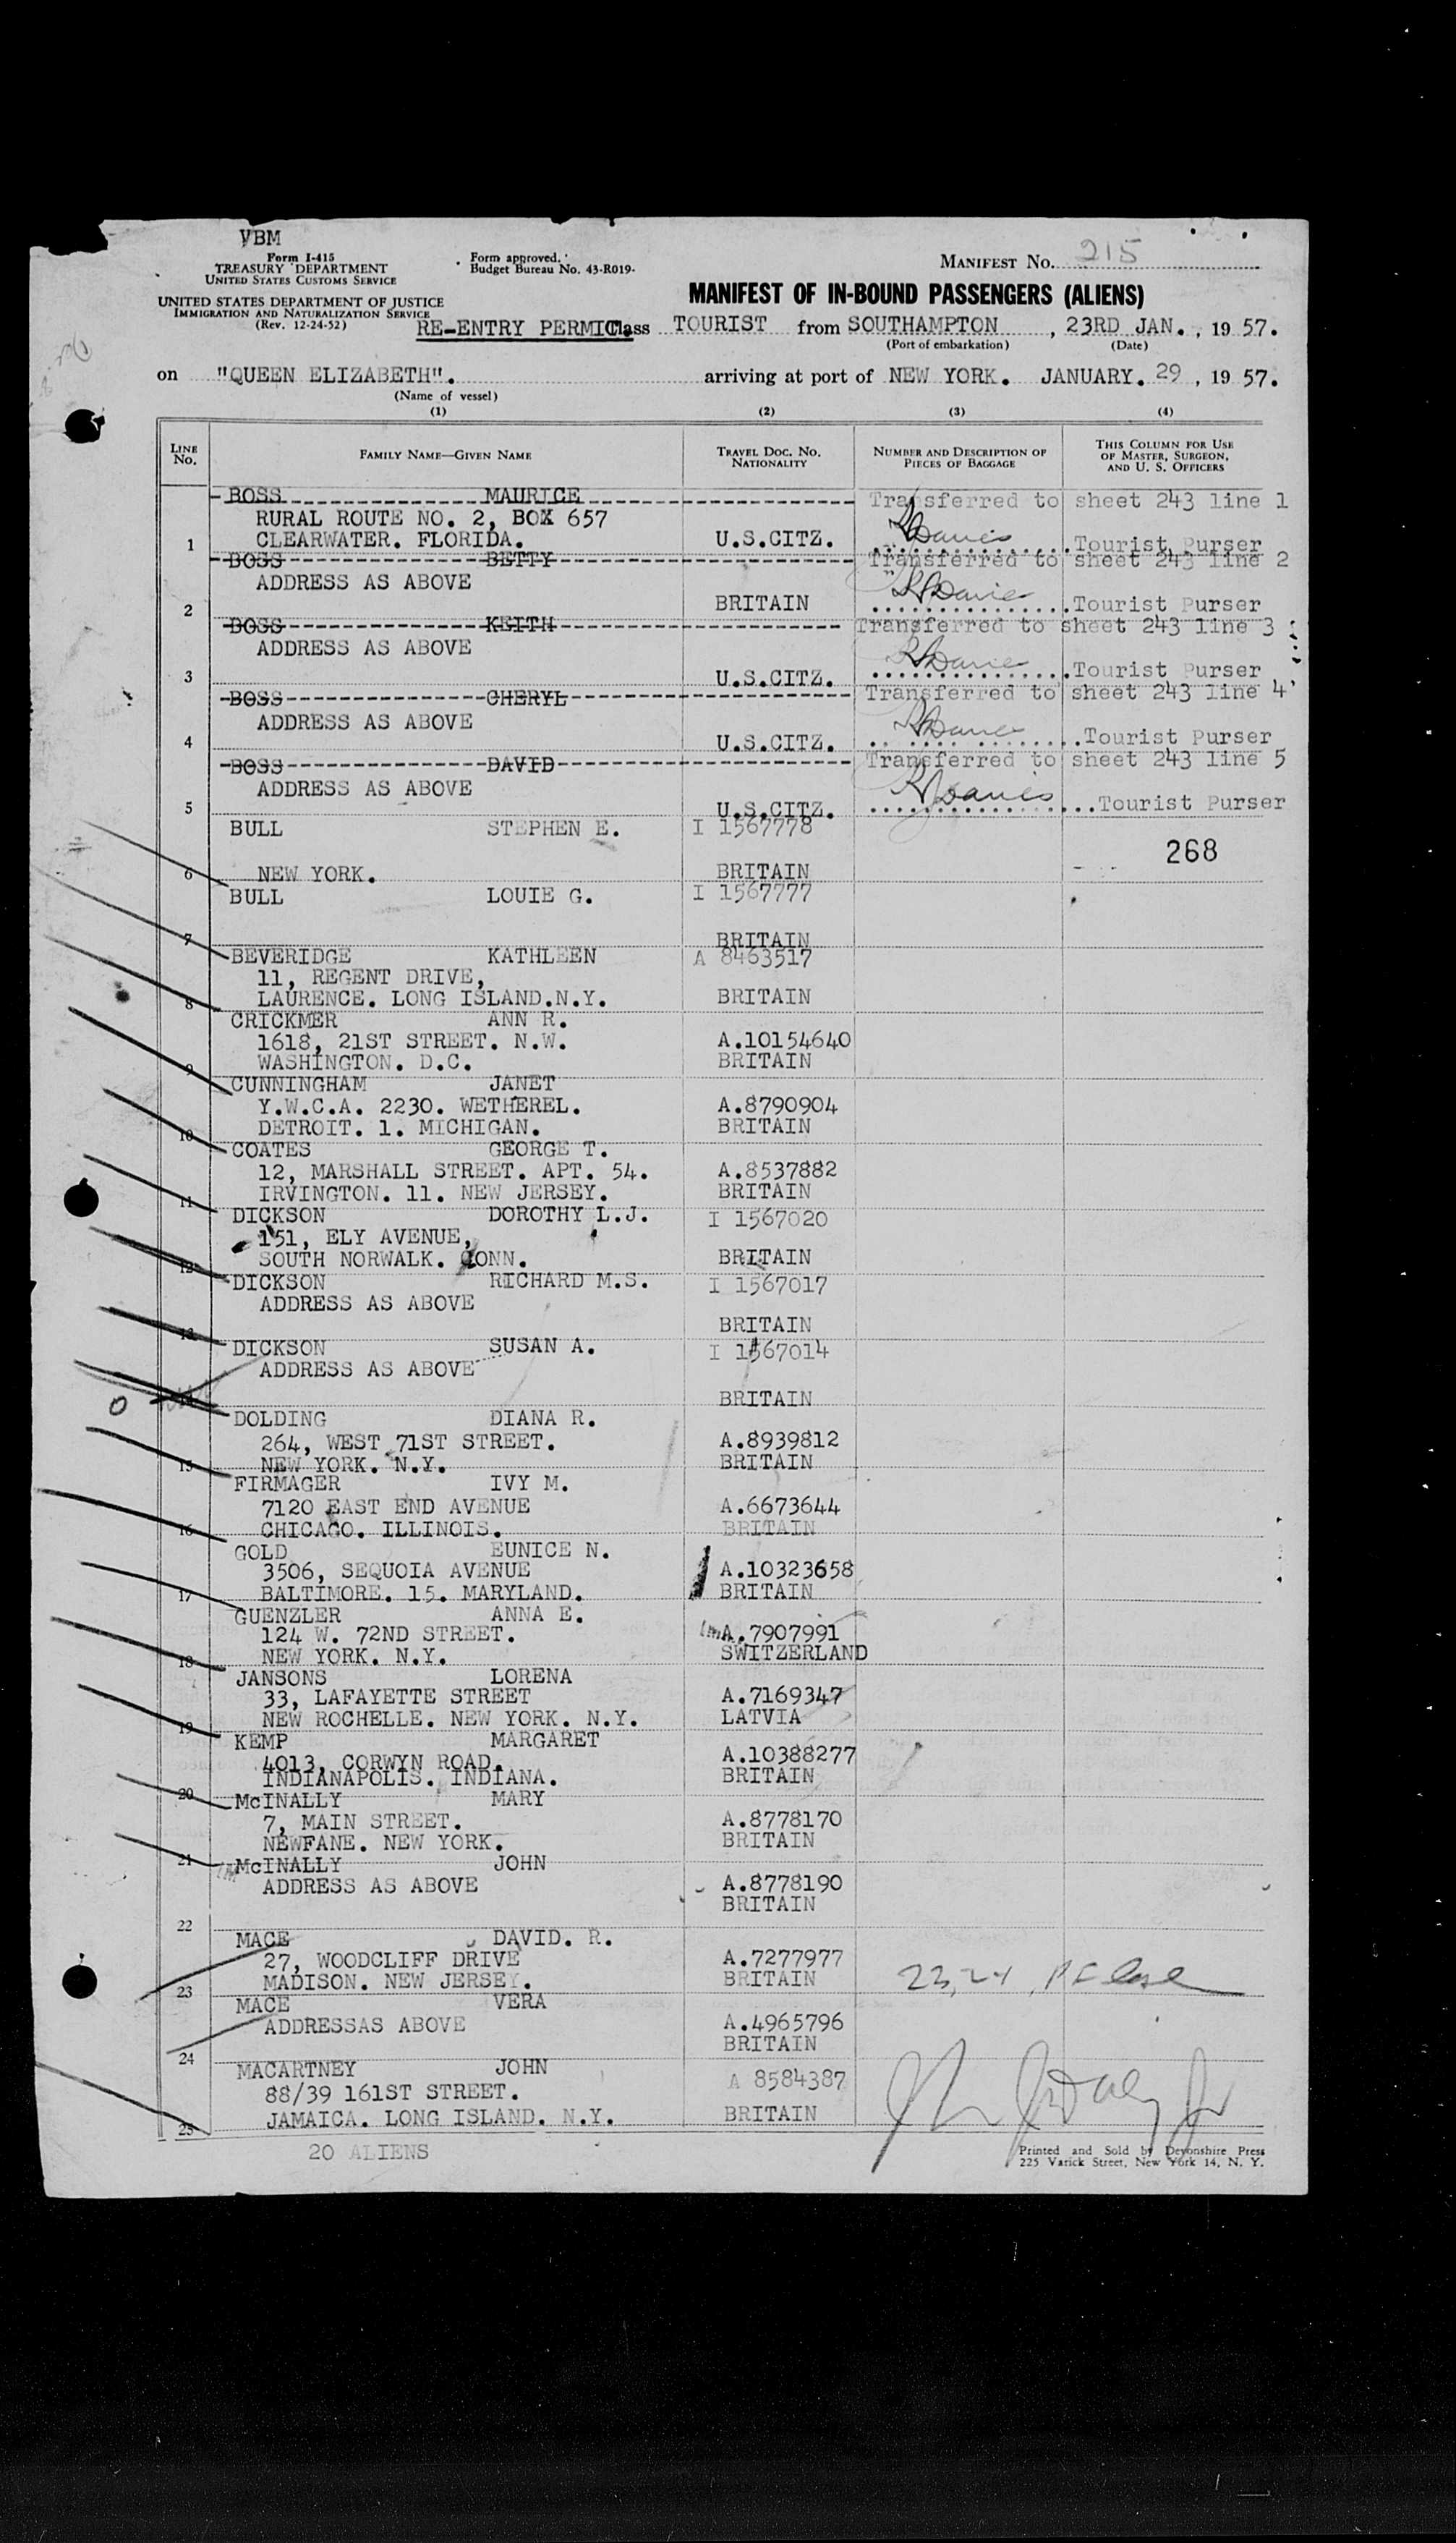 VBM
Form I-415
TREASURY DEPARTMENT
UNITED STATES CUSTOMS SERVICE
Form approved.
Budget Bureau No. 43-R019.
MANIFEST NO. 215
UNITED STATES DEPARTMENT OF JUSTICE
IMMIGRATION AND NATURALIZATION SERVICE
(Rev. 12-24-52)
MANIFEST OF IN-BOUND PASSENGERS (ALIENS)
RE-ENTRY PERMIT Class TOURIST from SOUTHAMPTON, 23RD JAN., 19 57.
(Port of embarkation) (Date)
on "QUEEN ELIZABETH". arriving at port of NEW YORK. JANUARY. 29, 19 57.
(Name of vessel)
(1) (2) (3) (4)
LINE NO. FAMILY NAME—GIVEN NAME TRAVEL DOC. NO. NATIONALITY NUMBER AND DESCRIPTION OF PIECES OF BAGGAGE THIS COLUMN FOR USE OF MASTER, SURGEON, AND U. S. OFFICERS
BOSS MAURICE Transferred to sheet 243 line 1
RURAL ROUTE NO. 2, BOX 657
1 CLEARWATER. FLORIDA. U.S.CITZ. Davies Tourist Purser
BOSS BETTY Transferred to sheet 243 line 2
ADDRESS AS ABOVE
2 BRITAIN Davies Tourist Purser
BOSS KEITH Transferred to sheet 243 line 3
ADDRESS AS ABOVE
3 U.S.CITZ. Davies Tourist Purser
BOSS CHERYL Transferred to sheet 243 line 4
ADDRESS AS ABOVE
4 U.S.CITZ. Davies Tourist Purser
BOSS DAVID Transferred to sheet 243 line 5
ADDRESS AS ABOVE
5 U.S.CITZ. Davies Tourist Purser
BULL STEPHEN E. I 1567778
268
6 NEW YORK. BRITAIN
BULL LOUIE G. I 1567777
7 BRITAIN
BEVERIDGE KATHLEEN A 8463517
11, REGENT DRIVE,
8 LAURENCE. LONG ISLAND.N.Y. BRITAIN
CRICKMER ANN R.
1618, 21ST STREET. N.W. A.10154640
9 WASHINGTON. D.C. BRITAIN
CUNNINGHAM JANET
Y.W.C.A. 2230. WETHEREL. A.8790904
10 DETROIT. 1. MICHIGAN. BRITAIN
COATES GEORGE T.
12, MARSHALL STREET. APT. 54. A.8537882
11 IRVINGTON. 11. NEW JERSEY. BRITAIN
DICKSON DOROTHY L.J. I 1567020
151, ELY AVENUE,
12 SOUTH NORWALK. CONN. BRITAIN
DICKSON RICHARD M.S. I 1567017
ADDRESS AS ABOVE
13 BRITAIN
DICKSON SUSAN A. I 1567014
ADDRESS AS ABOVE
14 BRITAIN
DOLDING DIANA R.
264, WEST 71ST STREET. A.8939812
15 NEW YORK. N.Y. BRITAIN
FIRMAGER IVY M.
7120 EAST END AVENUE A.6673644
16 CHICAGO. ILLINOIS. BRITAIN
GOLD EUNICE N.
3506, SEQUOIA AVENUE A.10323658
17 BALTIMORE. 15. MARYLAND. BRITAIN
GUENZLER ANNA E.
124 W. 72ND STREET. A.7907991
18 NEW YORK. N.Y. SWITZERLAND
JANSONS LORENA
33, LAFAYETTE STREET A.7169347
19 NEW ROCHELLE. NEW YORK. N.Y. LATVIA
KEMP MARGARET
4013, CORWYN ROAD. A.10388277
20 INDIANAPOLIS. INDIANA. BRITAIN
McINALLY MARY
7, MAIN STREET. A.8778170
21 NEWFANE. NEW YORK. BRITAIN
McINALLY JOHN
ADDRESS AS ABOVE A.8778190
BRITAIN
22
MACE DAVID. R.
27, WOODCLIFF DRIVE A.7277977
23 MADISON. NEW JERSEY. BRITAIN 23, 24
MACE VERA
ADDRESSAS ABOVE A.4965796
24 BRITAIN
MACARTNEY JOHN A 8584387
88/39 161ST STREET.
25 JAMAICA. LONG ISLAND. N.Y. BRITAIN
20 ALIENS
Printed and Sold by Devonshire Press
225 Varick Street, New York 14, N. Y.